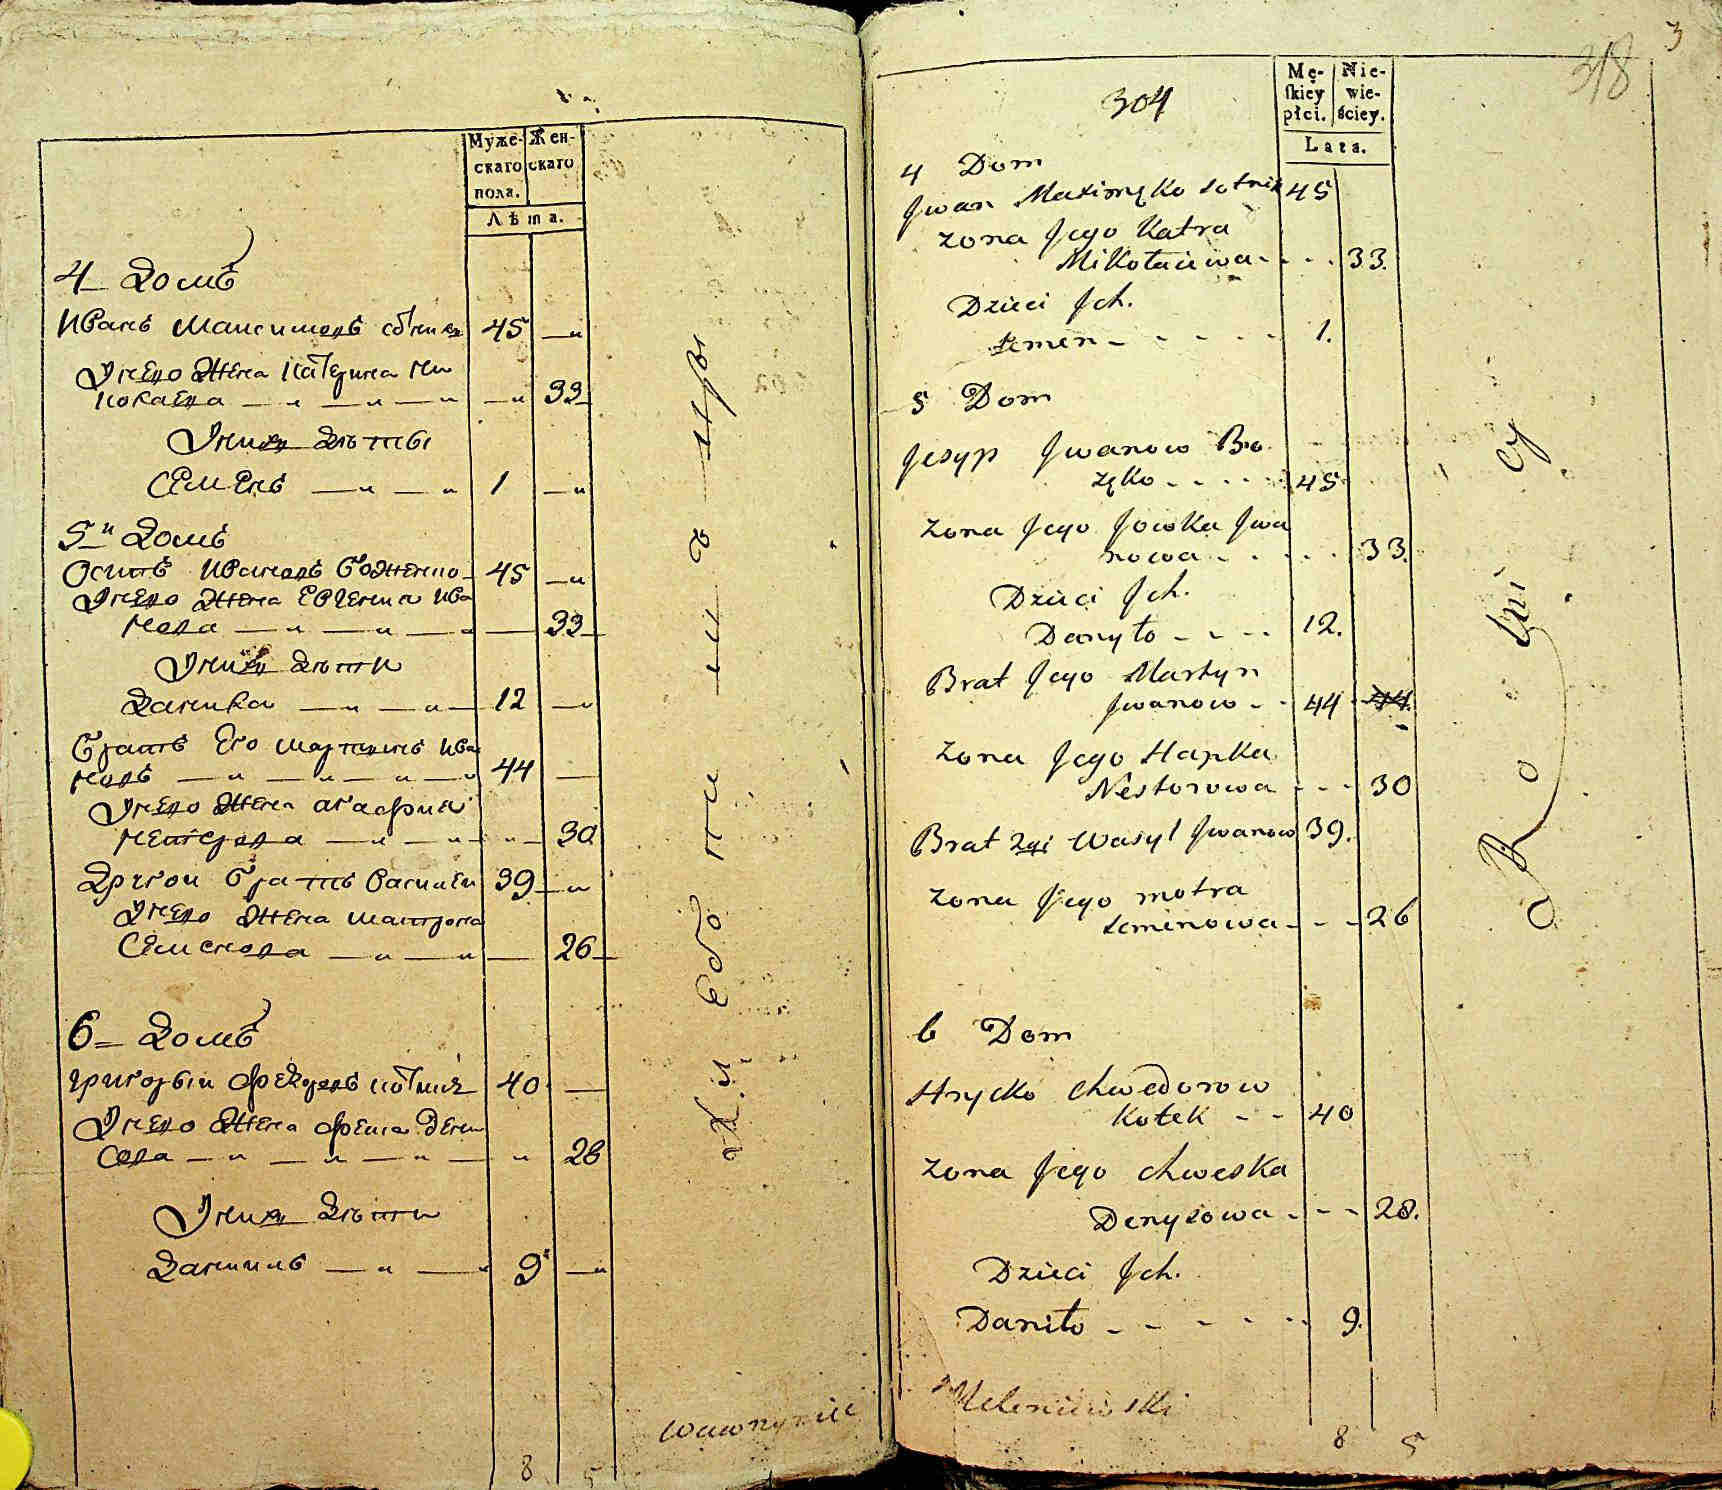 Муже-
скаго
пола.
Жен-
скаго
Лѣта.
4 Домъ
Иванъ Максимовъ сотникъ 45 —"
У него жена Катерина Ни
колаева — " — " — " — " 33
У нихъ дѣти
Семенъ — " — " 1 —"
5й Домъ
Осипъ Ивановъ Боженко 45 —"
У него жена Евгения Ива
нова — " — " — " — 33
У нихъ дѣти
Данила — " — " 12 —"
Братъ Его Мартинъ Ива
новъ — " — " — " — " 44 —
У него жена Агафия
Нестерова — " — " — " 30
Другой братъ Василей 39 —"
У него жена Матрона
Семенова — " — " — 26
6 Домъ
Григорый Фёдоровъ Котикъ 40 —
У него жена Феска Дени
сова — " — " — " — " 28
У нихъ дѣти
Данилъ — " — " 9 —"
8 5
3
318
304
Mę-
skiey
płci.
Nie-
wie-
ściey.
Lata.
4 Dom
Jwan Maximęko sotnik 45
zona Jego Katra
Mikołaiewa - - - 33.
Dzieci Jch.
Semen - - - - - 1.
5 Dom
Jesyp Jwanow Bo
zęko - - - - - 45
zona Jego Jowka Jwa
nowa - - - - - 33.
Dzieci Jch.
Danyło - - - - 12.
Brat Jego Martyn
Jwanow - - 44 44.
zona Jego Hapka
Nestorowa - - - 30
Brat 2gi Wasyl Jwanow 39.
zona Jego motra
semenowa - - - 26
6 Dom
Hrycko Chwedorow
Kotek - - 40
zona Jego Chweska
Denysowa - - - 28.
Dzieci Jch.
Daniło - - - - - - 9.
8 5